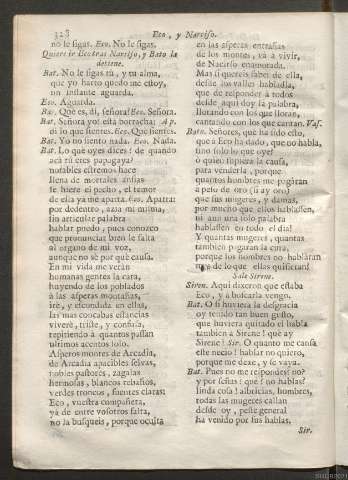 328
Eco, y Narciso.
no le sigas. Eco. No le sigas.
Quiere ir Eco tras Narciso, y Bato la
detiene.
Bat. No le sigas tú, y tu alma,
que yo harto quedo me estoy,
un instante aguarda.
Eco. Aguarda.
Bat. Què es, di, señora? Eco. Señora.
Bat. Señora yo! està borracha! ap.
di lo que sientes. Eco. Que sientes.
Bat. Yo no siento nada. Eco. Nada.
Bat. Lo què oyes dices! de quando
acà tù eres papagaya?
notables estremos hace
llena de mortales ansias
se hiere el pecho, el temor
de ella ya me aparta. Eco. Aparta:
por dedentro, azia mi misma,
sin articular palabra
hablar puedo, pues conozco
que pronunciar bien le falta
al organo de mi voz,
aunque no sè por què causa.
En mi vida me veràn
humanas gentes la cara,
huyendo de los poblados
à las asperas montañas,
irè, y escondida en ellas,
las mas concabas estancias
vivirè, triste, y confusa,
repitiendo à quantos passan
ultimos acentos solo.
Asperos montes de Arcadia,
de Arcadia apacibles selvas,
nobles pastores, zagalas
hermosas, blancos rebaños,
verdes troncos, fuentes claras:
Eco, vuestra compañera,
yà de entre vosotros falta,
no la busqueis, porque oculta
en las asperas entrañas
de los montes, và à vivir,
de Narciso enamorada.
Mas si quereis saber de ella,
desde los valles habladla,
que de responder à todos
desde aqui doy la palabra,
llorando con los que lloran,
cantando con los que cantan. Vas.
Bato. Señores, què ha sido esto,
que à Eco ha dado, que no habla,
sino solo lo que oye?
o quien supiera la causa,
para venderla, porque
quantos hombres me pagáran
à peso de oro (si ay oro)
que sus mugeres, y damas,
por mucho que ellos hablassen,
ni aun una solo palabra
hablassen en todo el dia!
Y quantas mugeres, quantas
tambien pagáran la cura,
porque los hombres no habláran
mas de lo que ellas quisieran!
Sale Sirene.
Siren. Aqui dixeron que estaba
Eco, y à buscarla vengo.
Bat. O si huviera la desgracia
oy tenido tan buen gusto,
que huviera quitado el habla
tambien à Sirene! què ay
Sirene? Sir. O quanto me cansa
este necio! hablar no quiero,
porque me dexe, y se vaya.
Bat. Pues no me respondes? no?
y por señas? què? no hablas?
linda cosa! albricias, hombres,
todas las mugeres callan
desde oy, peste general
ha venido por sus hablas.
Sir.